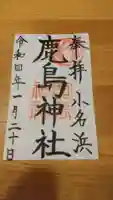 奉拝 小名浜
鹿島神社
令和四年一月二十日